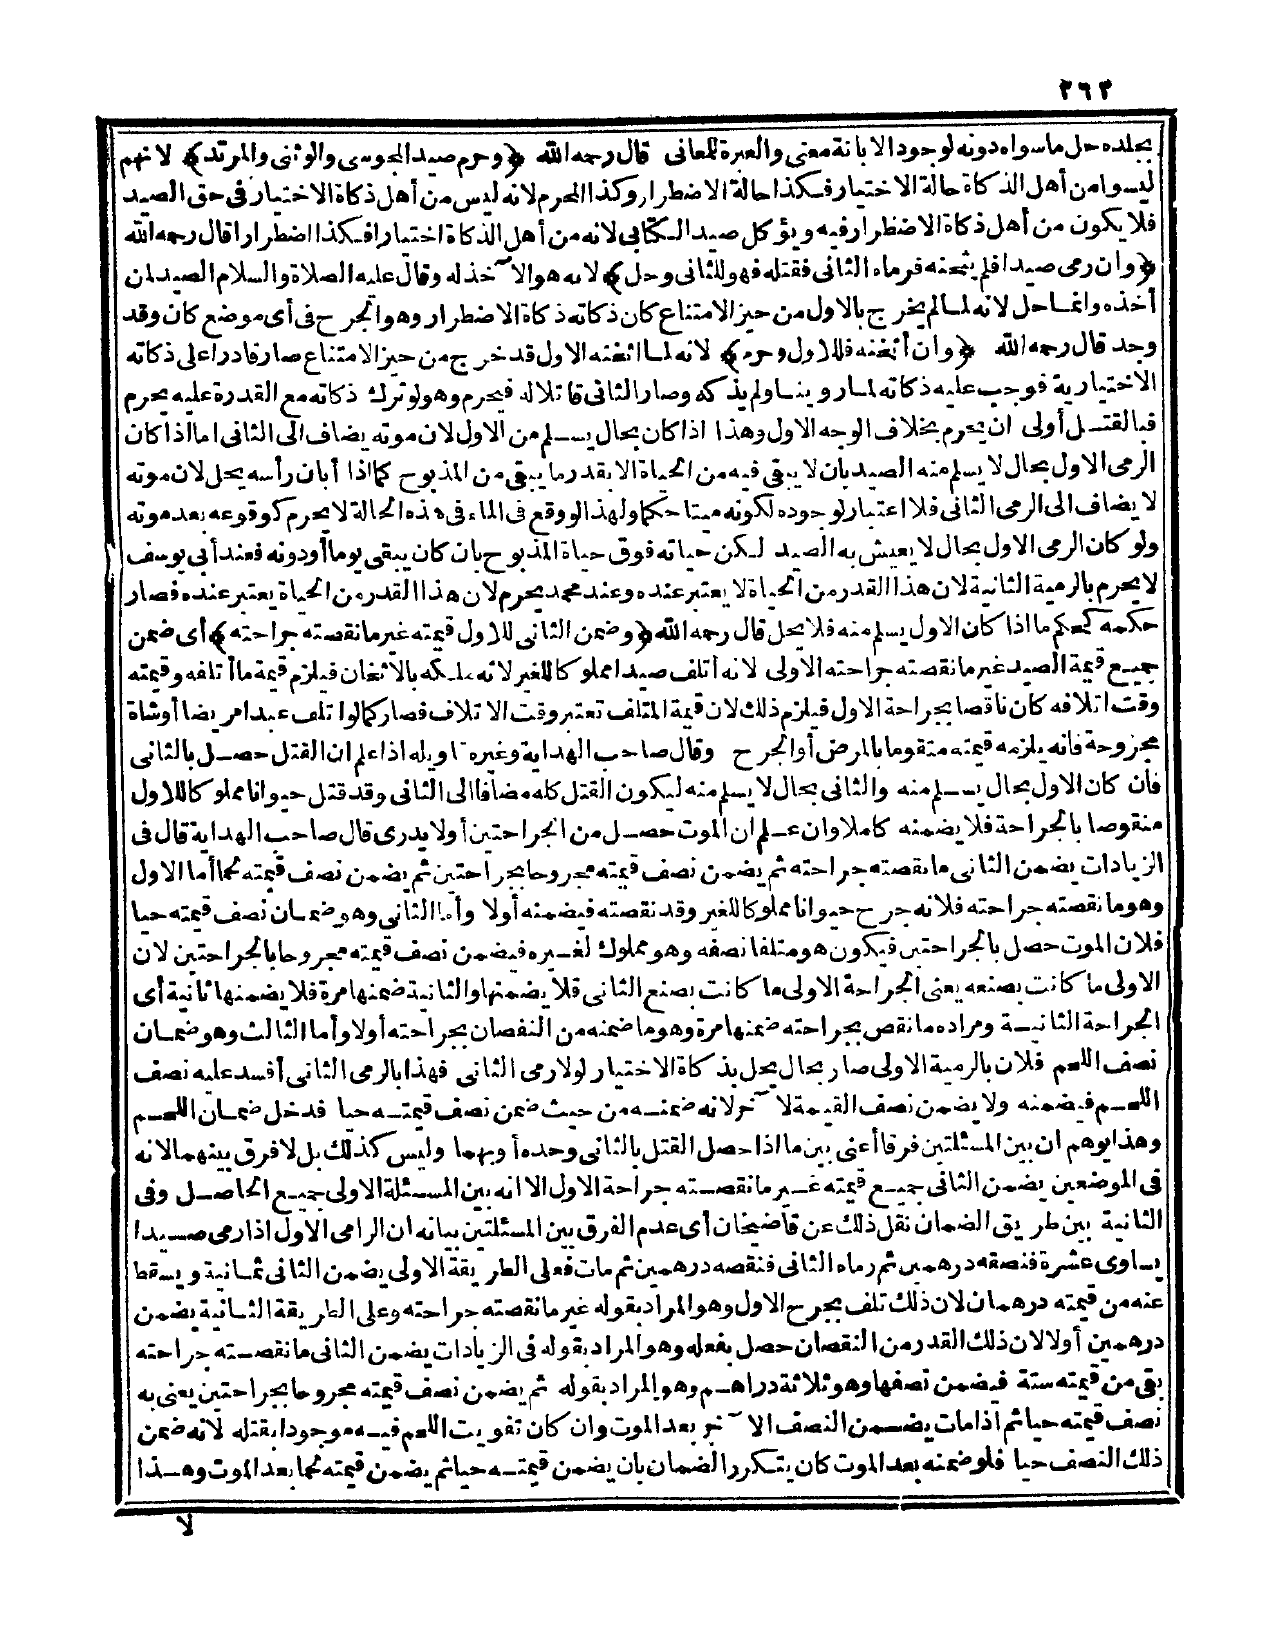 ٢٦٢
بجلده حل ما سواه دونه لوجود الابانة معنى والعبرة للمعانى قال رحمه الله ﴿وحرم صيد المجوسى والوثنى والمرتد﴾ لانهم
ليسوا من أهل الذكاة حالة الاختيار فكذا حالة الاضطرار وكذا المحرم لانه ليس من أهل ذكاة الاختيار فى حق الصيد
فلا يكون من أهل ذكاة الاضطرار فيه ويؤكل صيد الكتابى لانه من أهل الذكاة اختيارا فكذا اضطرارا قال رحمه الله
﴿وان رمى صيدا فلم يثخنه فرماه الثانى فقتله فهو للثانى وحل﴾ لانه هو الآخذ له وقال عليه الصلاة والسلام الصيد لمن
أخذه وانما حل لانه لما لم يخرج بالاول من حيز الامتناع كان ذكاته ذكاة الاضطرار وهو الجرح فى أى موضع كان وقد
وجد قال رحمه الله ﴿وان أثخنه فللاول وحرم﴾ لانه لما اثخنه الاول قد خرج من حيز الامتناع صار قادرا على ذكاته
الاختيارية فوجب عليه ذكاته لما روينا ولم يذكه وصار الثانى قاتلا له فيحرم وهو لو ترك ذكاته مع القدرة عليه يحرم
فبالقتل أولى ان يحرم بخلاف الوجه الاول وهذا اذا كان بحال يسلم من الاول لان موته يضاف الى الثانى اما اذا كان
الرمى الاول بحال لا يسلم منه الصيد بان لا يبقى فيه من الحياة الا بقدر ما يبقى من المذبوح كما اذا أبان رأسه يحل لان موته
لا يضاف الى الرمى الثانى فلا اعتبار لوجوده لكونه ميتا حكما ولهذا لو وقع فى الماء فى هذه الحالة لا يحرم كوقوعه بعد موته
ولو كان الرمى الاول بحال لا يعيش به الصيد لكن حياته فوق حياة المذبوح بان كان يبقى يوما أو دونه فعند أبى يوسف
لا يحرم بالرمية الثانية لان هذا القدر من الحياة لا يعتبر عنده وعند محمد يحرم لان هذا القدر من الحياة يعتبر عنده فصار
حكمه كحكم ما اذا كان الاول يسلم منه فلا يحل قال رحمه الله ﴿وضمن الثانى للاول قيمته غير ما نقصته جراحته﴾ أى ضمن
جميع قيمة الصيد غير ما نقصته جراحته الاولى لانه أتلف صيدا مملوكا للغير لانه ملكه بالاثخان فيلزم قيمة ما أتلفه وقيمته
وقت اتلافه كان ناقصا بجراحة الاول فيلزم ذلك لان قيمة المتلف تعتبر وقت الاتلاف فصار كما لو اتلف عبدا مريضا أو شاة
مجروحة فانه يلزمه قيمته متقوما بالمرض أو الجرح وقال صاحب الهداية وغيره تاويله اذا علم ان القتل حصل بالثانى
فان كان الاول بحال يسلم منه والثانى بحال لا يسلم منه ليكون القتل كله مضافا الى الثانى وقد قتل حيوانا مملوكا للاول
منقوصا بالجراحة فلا يضمنه كاملا وان علم ان الموت حصل من الجراحتين أو لا يدرى قال صاحب الهداية قال فى
الزيادات يضمن الثانى ما نقصته جراحته ثم يضمن نصف قيمته مجروحا بجراحتين ثم يضمن نصف قيمته لحما أما الاول
وهو ما نقصته جراحته فلانه جرح حيوانا مملوكا للغير وقد نقصته فيضمنه أولا وأما الثانى وهو ضمان نصف قيمته حيا
فلان الموت حصل بالجراحتين فيكون هو متلفا نصفه وهو مملوك لغيره فيضمن نصف قيمته مجروحا بالجراحتين لان
الاولى ما كانت بصنعه يعنى الجراحة الاولى ما كانت بصنع الثانى فلا يضمنها والثانية ضمنها مرة فلا يضمنها ثانية أى
الجراحة الثانية ومراده ما نقص بجراحته ضمنها مرة وهو ما ضمنه من النقصان بجراحته أولا وأما الثالث وهو ضمان
نصف اللحم فلان بالرمية الاولى صار بحال يحل بذكاة الاختيار لولا رمى الثانى فهذا بالرمى الثانى أفسد عليه نصف
اللحم فيضمنه ولا يضمن نصف القيمة لآخر لانه ضمنه من حيث ضمن نصف قيمته حيا فدخل ضمان اللحم
وهذا يوهم ان بين المسئلتين فرقا أعنى بين ما اذا حصل القتل بالثانى وحده أو بهما وليس كذلك بل لا فرق بينهما لانه
فى الموضعين يضمن الثانى جميع قيمته غير ما نقصته جراحة الاول الا انه بين المسئلة الاولى جميع الحاصل وفى
الثانية بين طريق الضمان نقل ذلك عن قاضيخان أى عدم الفرق بين المسئلتين بيانه ان الرامى الاول اذا رمى صيدا
يساوى عشرة فنقصه درهمين ثم رماه الثانى فنقصه درهمين ثم مات فعلى الطريقة الاولى يضمن الثانى ثمانية ويسقط
عنه من قيمته درهمان لان ذلك تلف بجرح الاول وهو المراد بقوله غير ما نقصته جراحته وعلى الطريقة الثانية يضمن
درهمين أولا لان ذلك القدر من النقصان حصل بفعله وهو المراد بقوله فى الزيادات يضمن الثانى ما نقصته جراحته
بقى من قيمته ستة فيضمن نصفها وهو ثلاثة دراهم وهو المراد بقوله ثم يضمن نصف قيمته مجروحا بجراحتين يعنى به
نصف قيمته حيا ثم اذا مات يضمن النصف الآخر بعد الموت وان كان تفويت اللحم فيه موجودا بقتله لانه ضمن
ذلك النصف حيا فلو ضمنه بعد الموت كان يتكرر الضمان بان يضمن قيمته حيا ثم يضمن قيمته لحما بعد الموت وهذا
لا